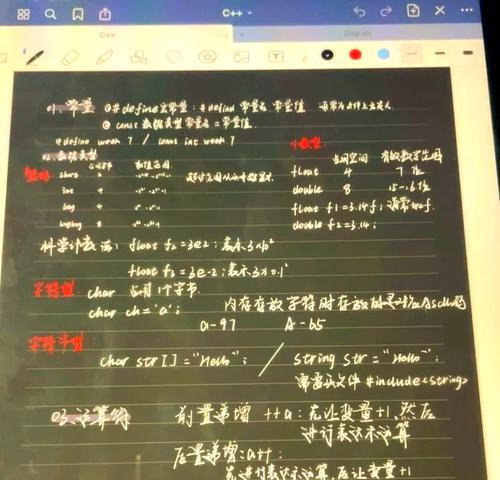 C++
C++
English
01. 常量 ① #define 宏常量: #define 常量名 常量值 通常在文件上方定义
② const 数据类型 常量名 = 常量值.
#define week 7 / const int week 7
02. 数据类型
小数型:
占用空间 取值范围
占用空间 有效数字范围
整型: short
float 4 7位
int 4
double 8 15-16位
long
float f1=3.14f; 通常加f.
double f2=3.14;
科学计数法: float f2=3e2; 表示3×10²
float f2=3e-2; 表示3×0.1²
字符型 char 占用1个字节.
char ch='a'; 内存存放字符时存放的是对应Ascll码
a-97 A-65
字符串型:
char str[]="Hello"; / string str="Hello";
需写头文件 #include<string>
03.运算符 前置递增 ++a: 先让变量+1, 然后
进行表达示运算
后置递增: a++:
先进行表达示运算, 后让变量+1